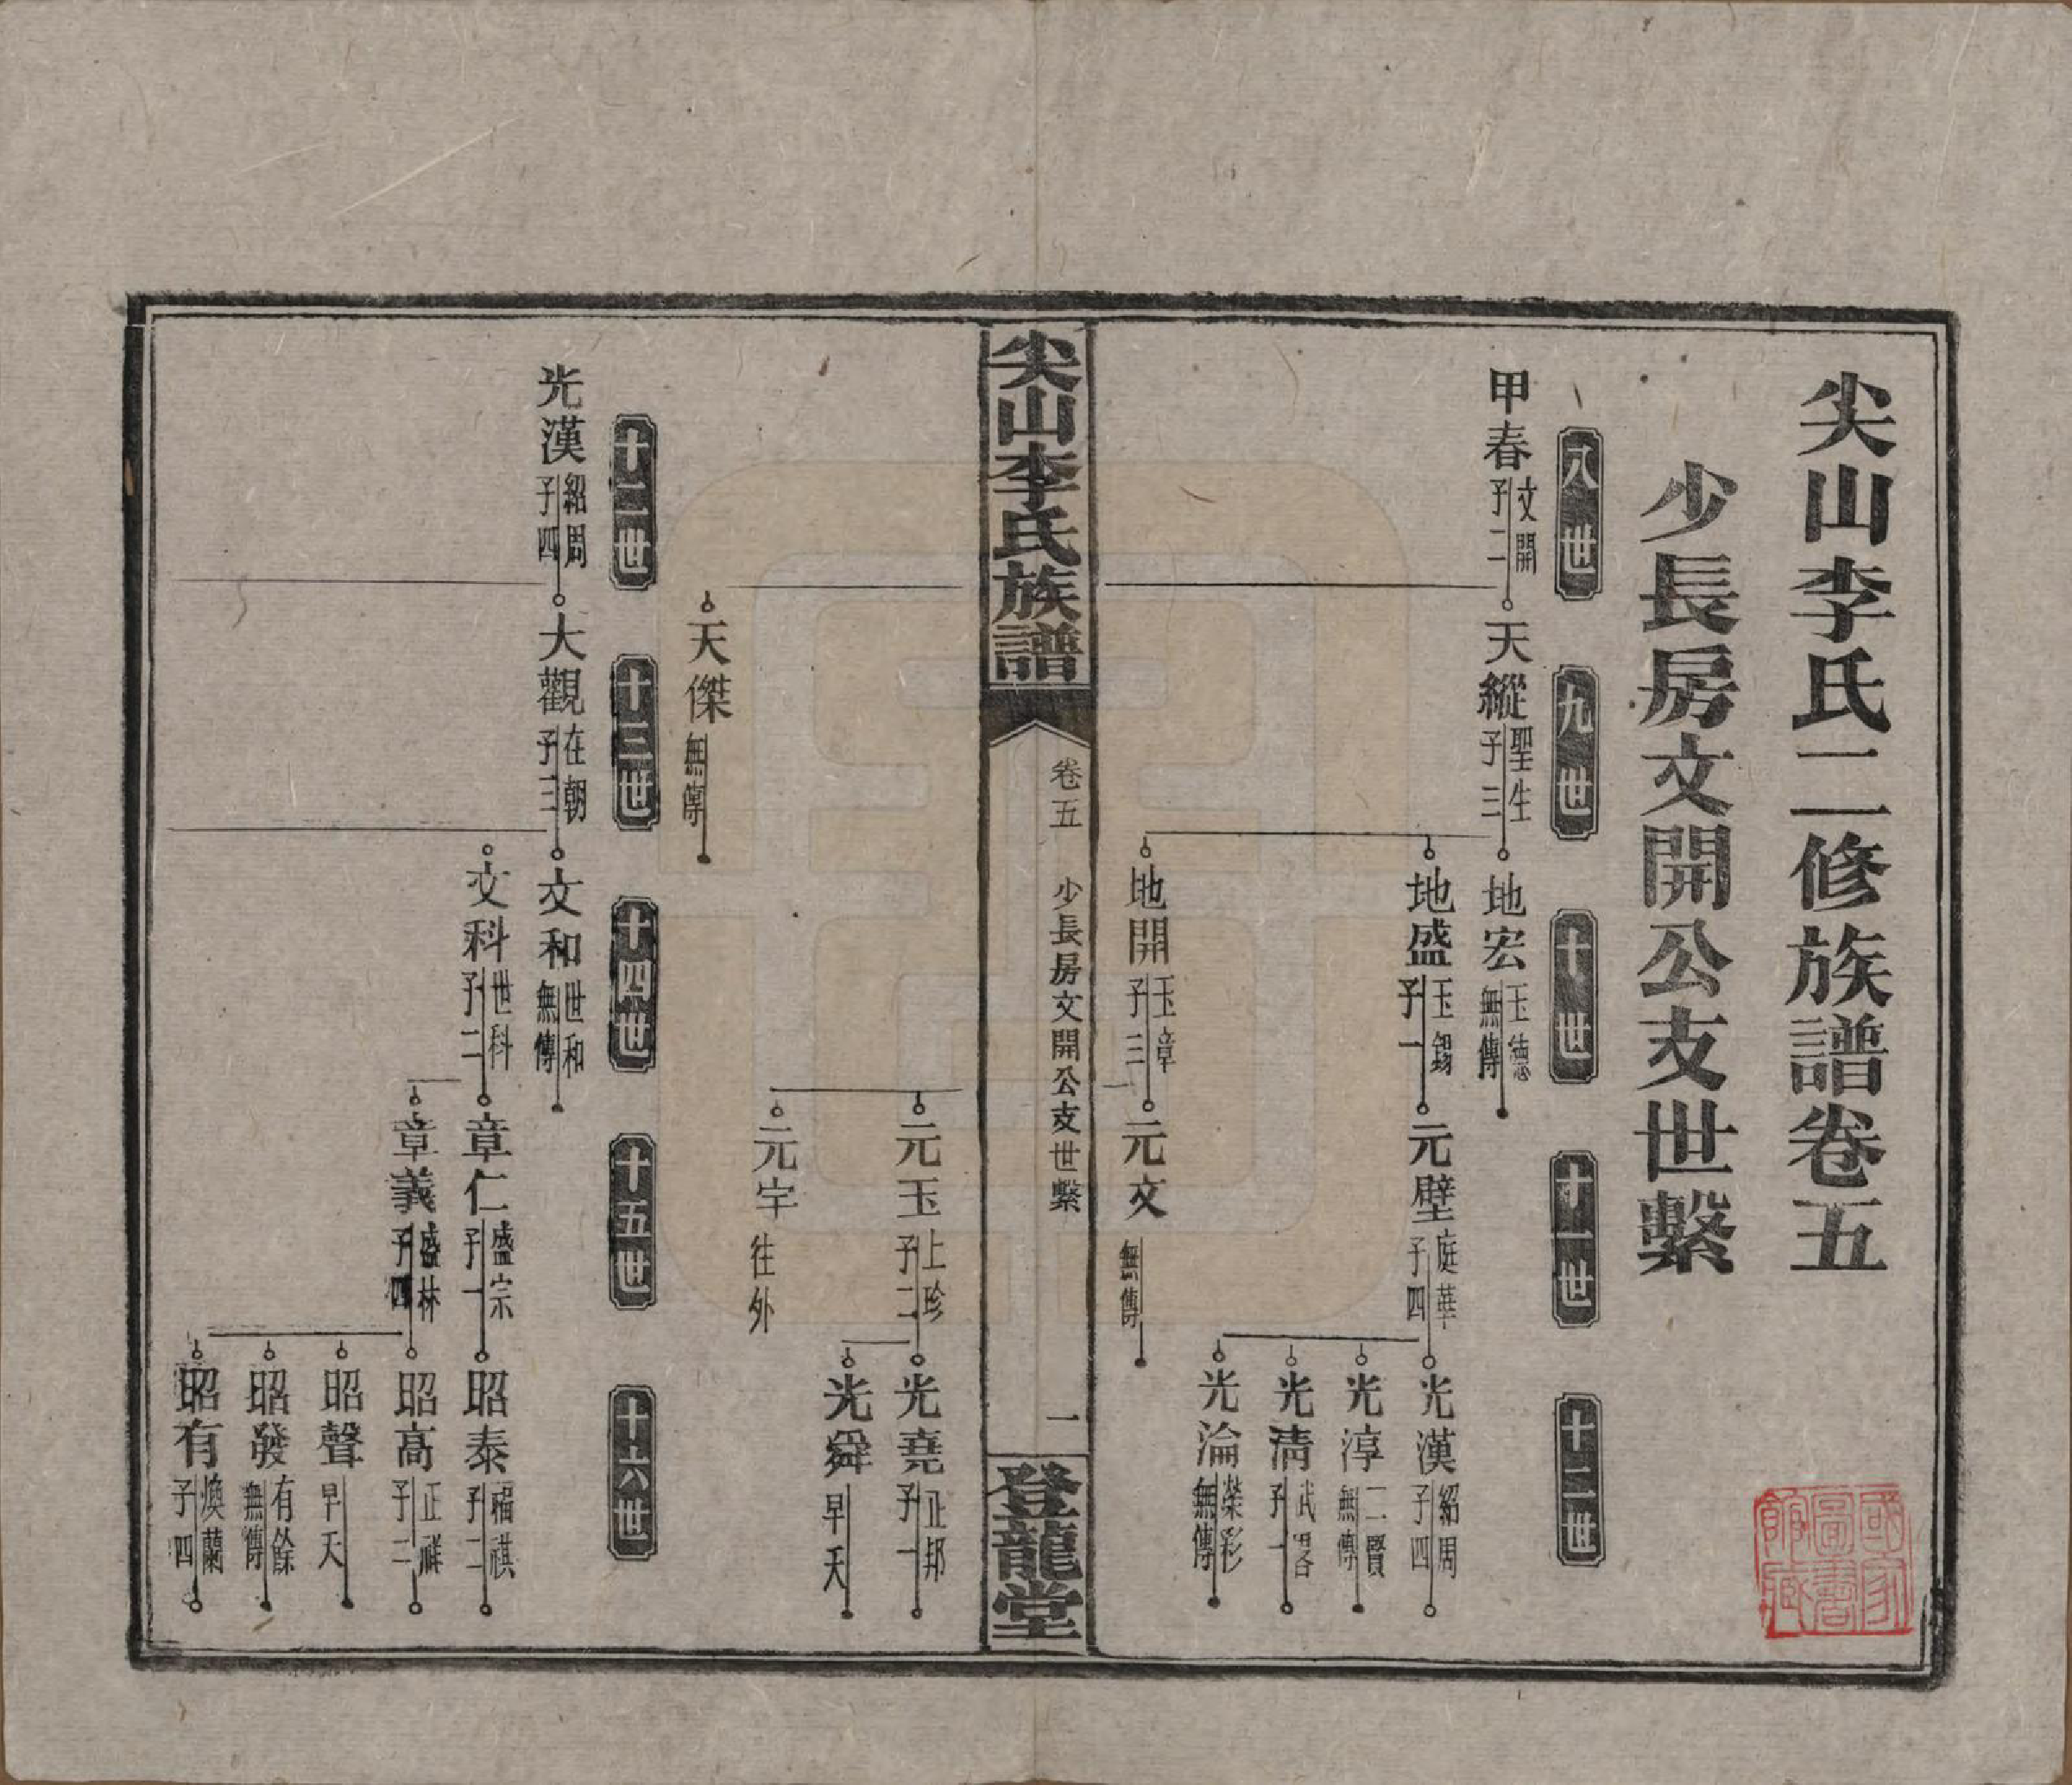 尖山李氏二修族譜卷五
少長房文開公支世繫
八世 九世 十世 十一世 十二世
甲春 文開 子二
天縱 聖生 子三
地宏 玉德 無傳
地盛 玉錫 子一
元璧 庭華 子四
光漢 紹周 子四
光淳 二賢 無傳
光清 武畧 子一
光淪 榮彩 無傳
地開 玉章 子三
元文 無傳
尖山李氏族譜
卷五 少長房文開公支世繫
一
登龍堂
元玉 上珍 子二
光堯 正邦 子一
光舜 早夭
元宇 往外
天傑 無傳
十二世 十三世 十四世 十五世 十六世
光漢 紹周 子四
大觀 在朝 子三
文和 世和 無傳
文科 世科 子二
章仁 盛宗 子一
昭泰 福祺 子二
章義 盛林 子四
昭高 正祥 子二
昭聲 早夭
昭發 有餘 無傳
昭有 煥蘭 子四
國家圖書館藏